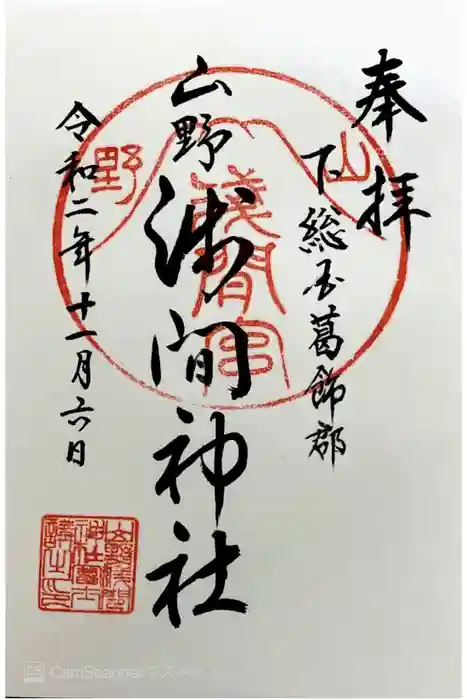 奉拝
下総国葛飾郡
山野
浅間神社
令和二年十一月六日
山
野
浅間宮
CamScanner